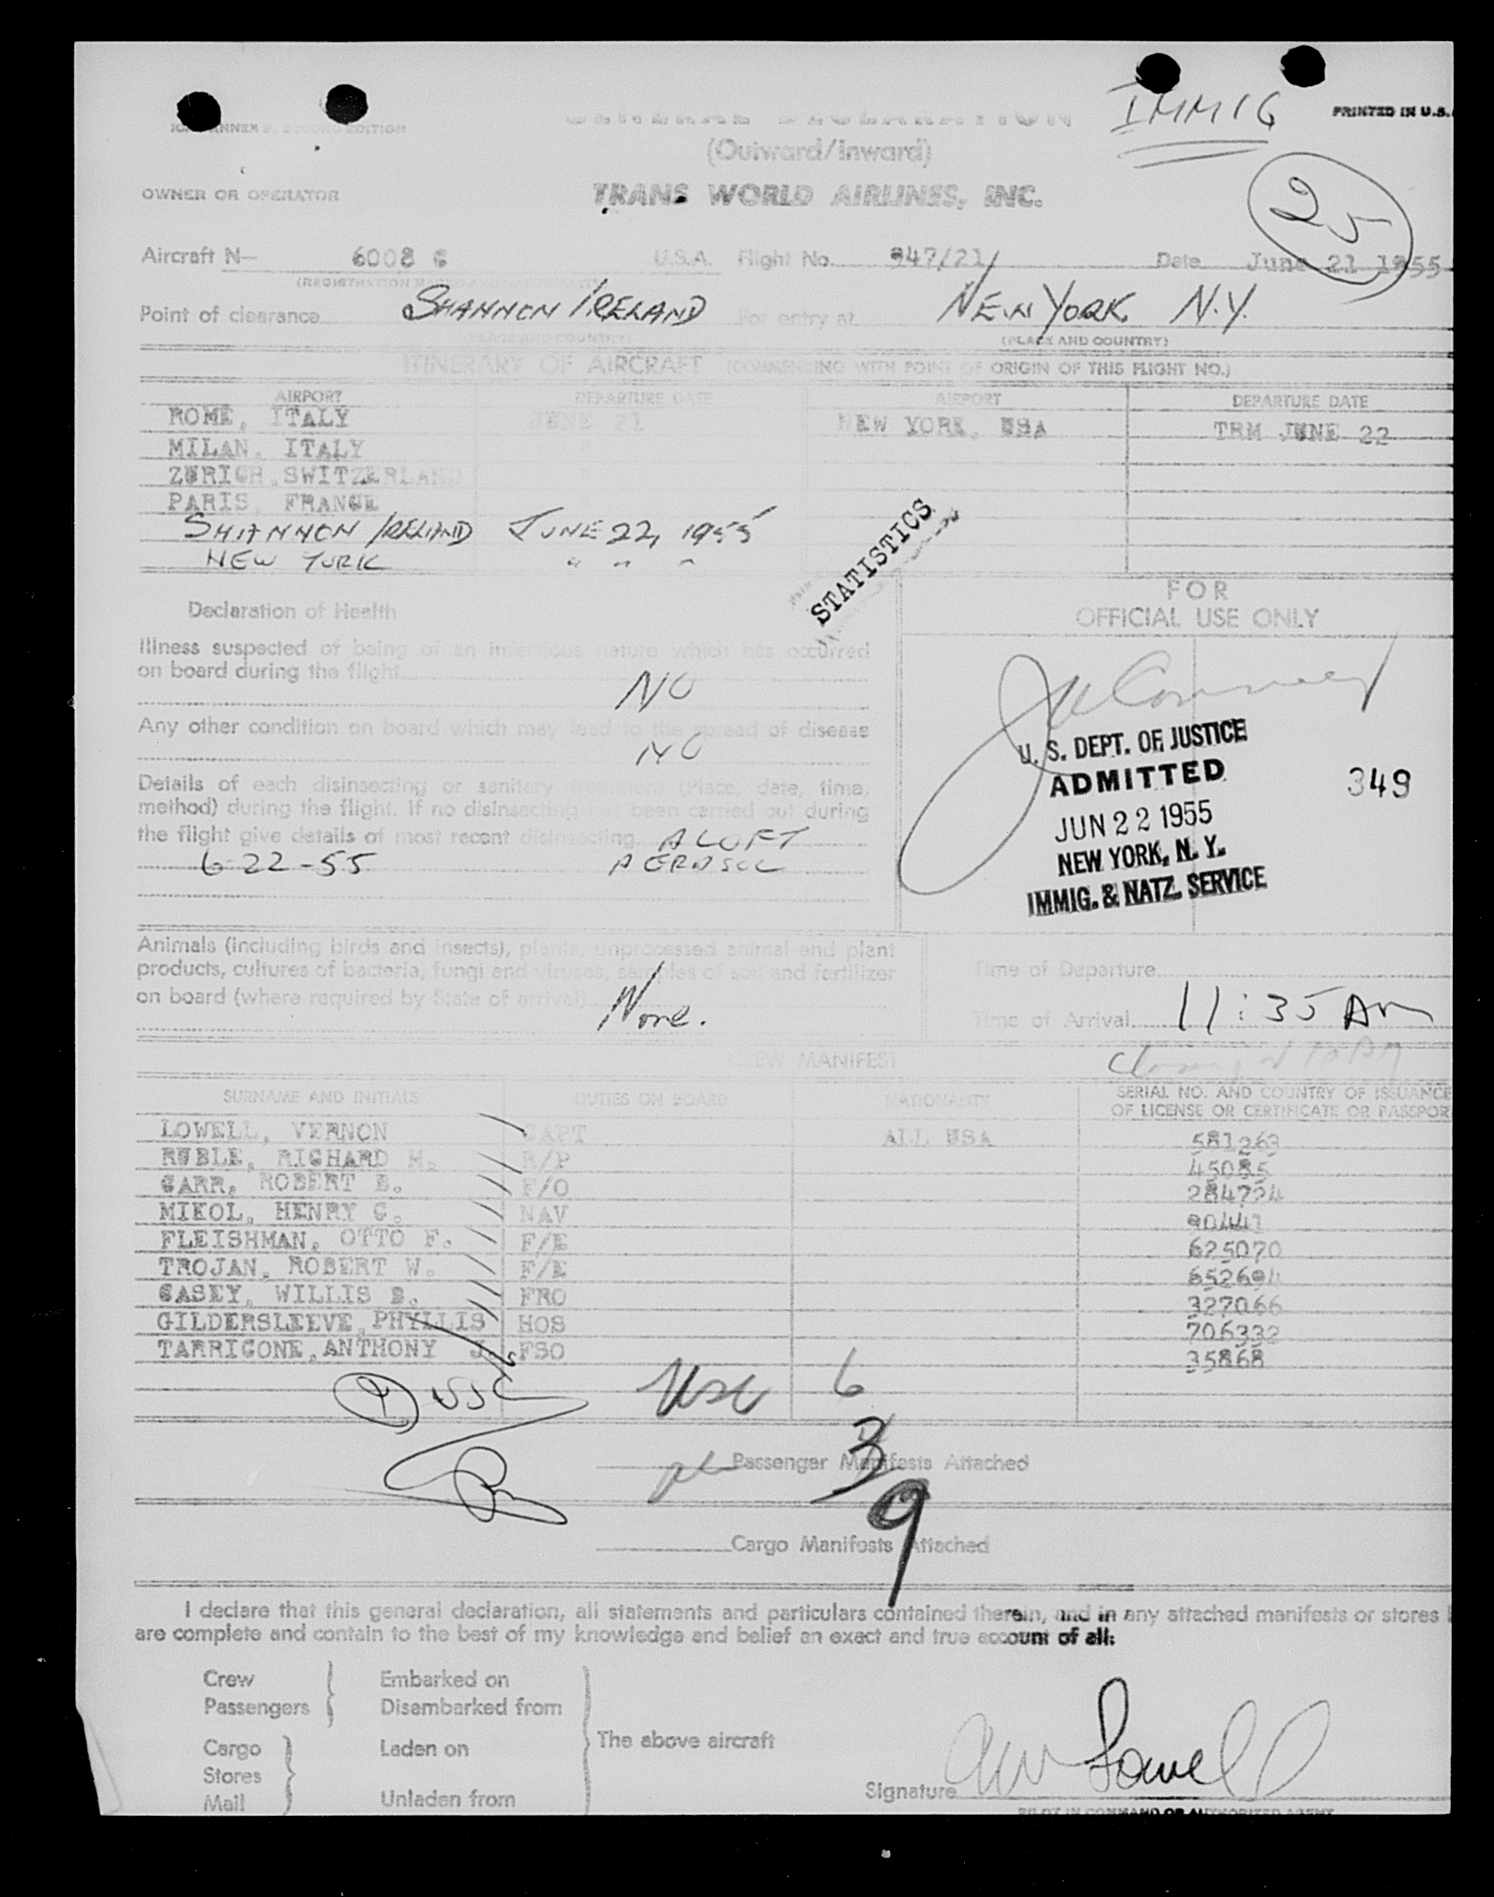 IMMIG
PRINTED IN U.S.
GENERAL DECLARATION
(Outward/Inward)
OWNER OR OPERATOR
TRANS WORLD AIRLINES, INC.
25
Aircraft N— 6008 C U.S.A. Flight No. 947/21 Date June 21 1955
Point of clearance SHANNON IRELAND For entry at NEW YORK N.Y.
(PLACE AND COUNTRY) (PLACE AND COUNTRY)
ITINERARY OF AIRCRAFT (COMMENCING WITH POINT OF ORIGIN OF THIS FLIGHT NO.)
AIRPORT DEPARTURE DATE AIRPORT DEPARTURE DATE
ROME, ITALY JUNE 21 NEW YORK, USA TRM JUNE 22
MILAN, ITALY "
ZURICH, SWITZERLAND
PARIS, FRANCE
SHANNON IRELAND JUNE 22, 1955
NEW YORK " " "
STATISTICS
FOR
OFFICIAL USE ONLY
Declaration of Health
Illness suspected of being of an infectious nature which has occurred
on board during the flight
NO
Any other condition on board which may lead to the spread of disease
NO
Details of each disinsecting or sanitary treatment (Place, date, time,
method) during the flight. If no disinsecting has been carried out during
the flight give details of most recent disinsecting. ALOFT
6-22-55 AEROSOL
U. S. DEPT. OF JUSTICE
ADMITTED
349
JUN 22 1955
NEW YORK, N. Y.
IMMIG. & NATZ. SERVICE
Animals (including birds and insects), plants, unprocessed animal and plant
products, cultures of bacteria, fungi and viruses, samples of soil and fertilizer
on board (where required by State of arrival)
None.
Time of Departure
Time of Arrival 11:35 Am
CREW MANIFEST
SURNAME AND INITIALS DUTIES ON BOARD NATIONALITY SERIAL NO. AND COUNTRY OF ISSUANCE
OF LICENSE OR CERTIFICATE OR PASSPOR
LOWELL, VERNON CAPT ALL USA 581263
RUBLE, RICHARD H. R/P 45085
CARR, ROBERT E. F/O 284724
MIKOL, HENRY G. NAV 90441
FLEISHMAN, OTTO F. F/E 625070
TROJAN, ROBERT W. F/E 652694
CASEY, WILLIS B. FRO 327066
GILDERSLEEVE, PHYLLIS HOS 706332
TARRICONE, ANTHONY J. FSO 35868
9 USC USC 6
3
Passenger Manifests Attached
9
Cargo Manifests Attached
I declare that this general declaration, all statements and particulars contained therein, and in any attached manifests or stores
are complete and contain to the best of my knowledge and belief an exact and true account of all:
Crew Embarked on
Passengers Disembarked from
The above aircraft
Cargo Laden on
Stores
Mail Unladen from
Signature Lowell
PILOT IN COMMAND OR AUTHORIZED AGENT